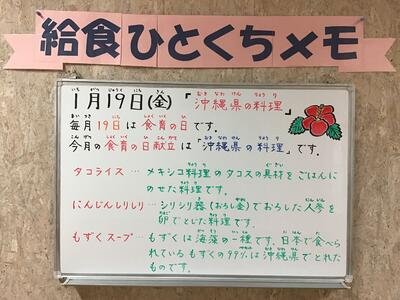 給食ひとくちメモ
1月19日(金) 「沖縄県の料理」
毎月19日は食育の日です。
今月の食育の日献立は「沖縄県の料理」です。
タコライス…メキシコ料理のタコスの具材をごはんに
のせた料理です。
にんじんしりしり…シリシリ器(おろし金)でおろした人参を
卵でとじた料理です。
もずくスープ…もずくは海藻の一種です。日本で食べら
れているもずくの99%は沖縄県でとれた
ものです。